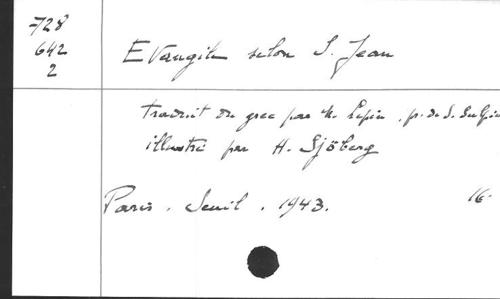 728
642
2
Evangile selon S. Jean
traduit du grec par M. Lepin, p. de S. Sulpice
illustré par H. Sjöberg
Paris. Seuil. 1943. 16